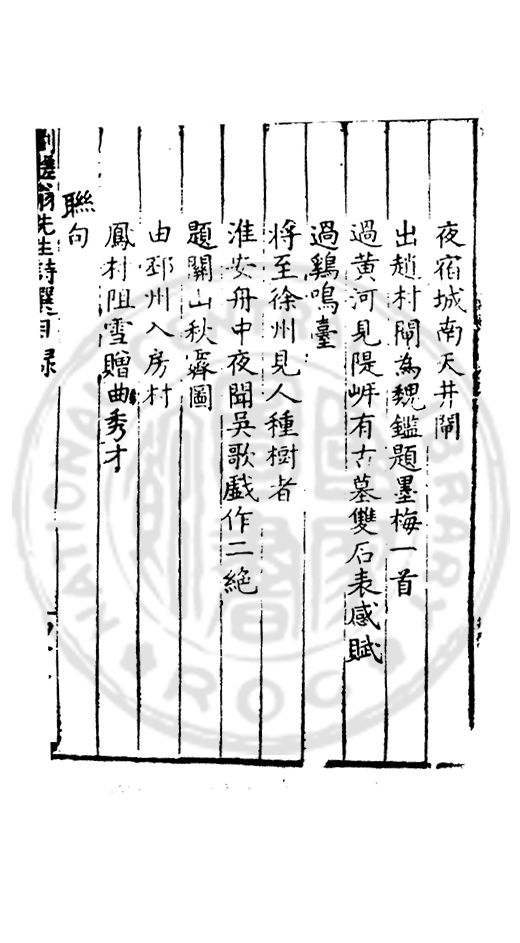 夜宿城南天井閘
出趙村閘為魏鑑題墨梅一首
過黃河見隄岍有古墓雙石表感賦
過鷄鳴臺
將至徐州見人種樹者
淮安舟中夜聞吳歌戲作二絶
題關山秋霽圖
由邳州入房村
鳳村阻雪贈曲秀才
聯句
先生詩選目録